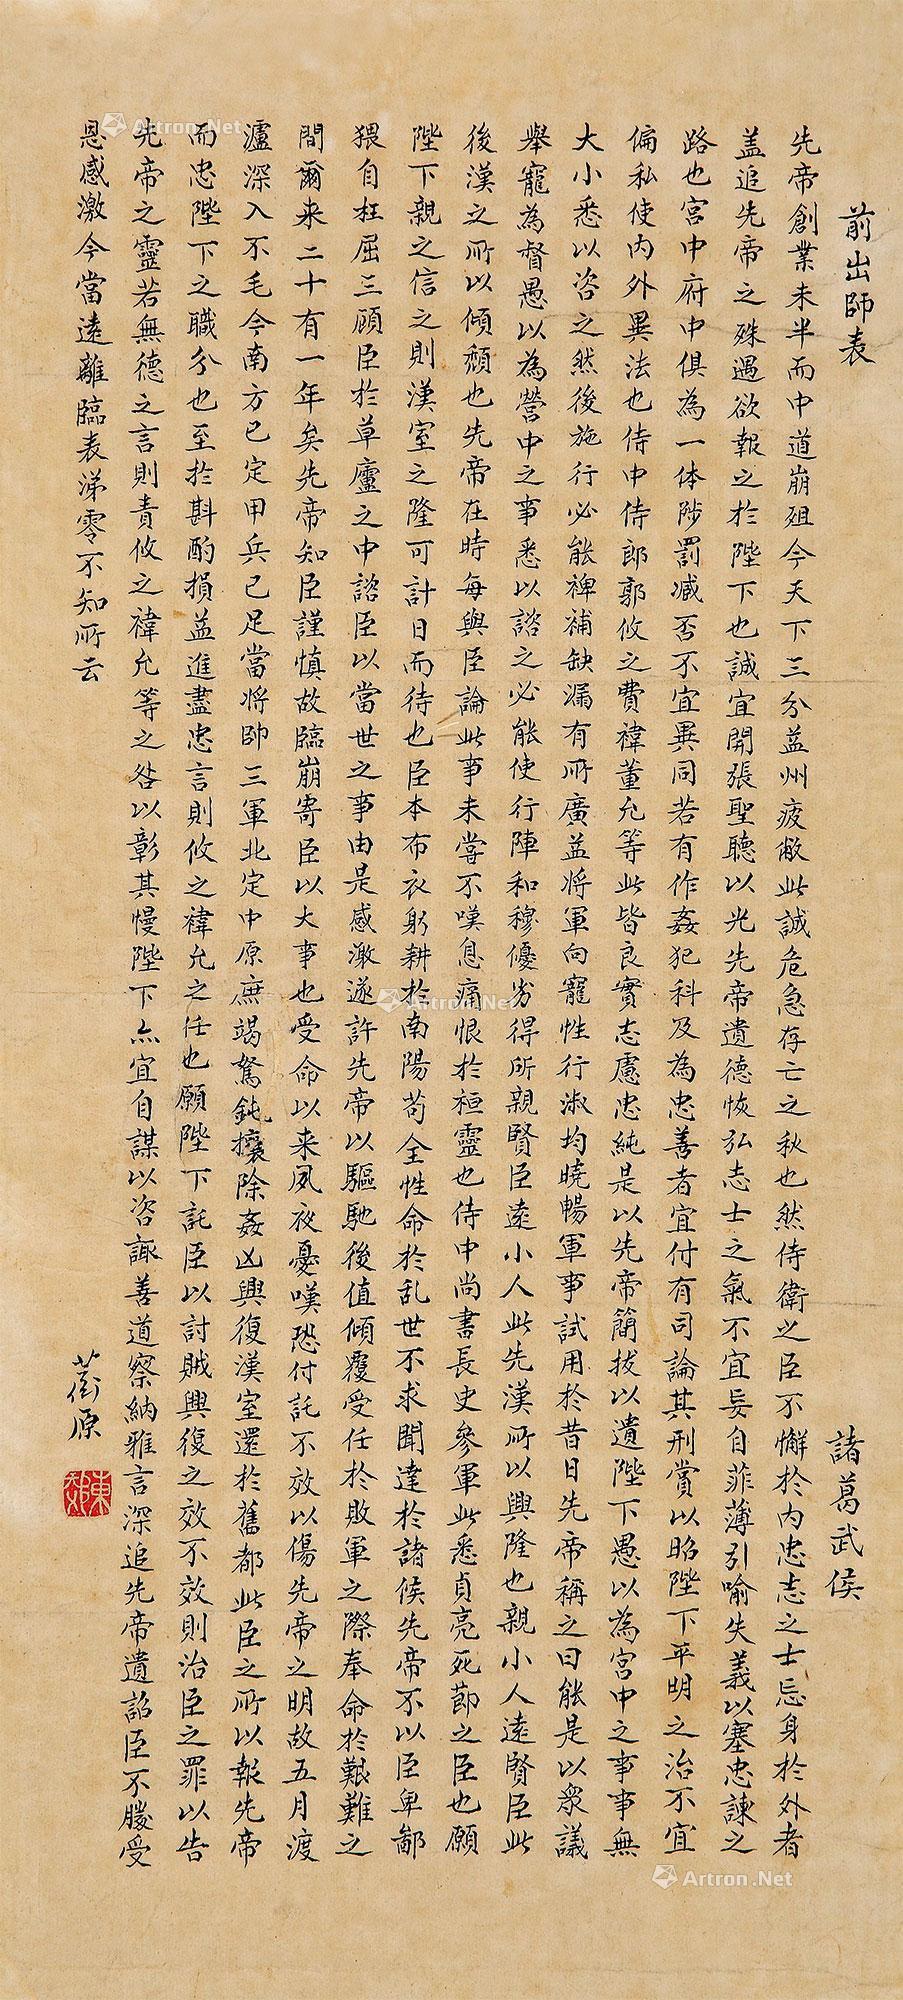 前出師表
諸葛武侯
先帝創業未半而中道崩殂今天下三分益州疲敝此誠危急存亡之秋也然侍衛之臣不懈於内忠志之士忘身於外者
盖追先帝之殊遇欲報之於陛下也誠宜開張聖聽以光先帝遺德恢弘志士之氣不宜妄自菲薄引喻失義以塞忠諫之
路也宮中府中俱為一体陟罰臧否不宜異同若有作姦犯科及為忠善者宜付有司論其刑賞以昭陛下平明之治不宜
偏私使内外異法也侍中侍郎郭攸之費禕董允等此皆良實志慮忠純是以先帝簡拔以遺陛下愚以為宮中之事事無
大小悉以咨之然後施行必能裨補缺漏有所廣益將軍向寵性行淑均曉暢軍事試用於昔日先帝稱之曰能是以衆議
舉寵為督愚以為營中之事悉以諮之必能使行陣和穆優劣得所親賢臣遠小人此先漢所以興隆也親小人遠賢臣此
後漢之所以傾頹也先帝在時每與臣論此事未嘗不嘆息痛恨於桓靈也侍中尚書長史參軍此悉貞亮死節之臣也願
陛下親之信之則漢室之隆可計日而待也臣本布衣躬耕於南陽苟全性命於乱世不求聞達於諸侯先帝不以臣卑鄙
猥自枉屈三顧臣於草廬之中諮臣以當世之事由是感激遂許先帝以驅馳後值傾覆受任於敗軍之際奉命於艱難之
間爾来二十有一年矣先帝知臣謹慎故臨崩寄臣以大事也受命以来夙夜憂嘆恐付託不效以傷先帝之明故五月渡
瀘深入不毛今南方已定甲兵已足當將帥三軍北定中原庶竭駑鈍攘除姦凶興復漢室還於舊都此臣之所以報先帝
而忠陛下之職分也至於斟酌損益進盡忠言則攸之禕允之任也願陛下託臣以討賊興復之效不效則治臣之罪以告
先帝之靈若無德之言則責攸之禕允等之咎以彰其慢陛下亦宜自謀以咨諏善道察納雅言深追先帝遺詔臣不勝受
恩感激今當遠離臨表涕零不知所云
蘅原
陳邦
Artron.Net
Artron.Net
Artron.Net
Artron.Net